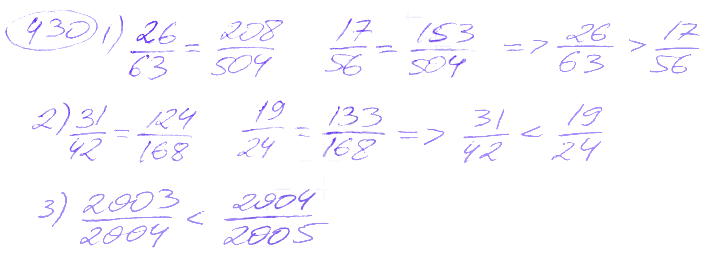 430 1) 26/63 = 208/504 17/56 = 153/504 => 26/63 > 17/56
2) 31/42 = 124/168 19/24 = 133/168 => 31/42 < 19/24
3) 2003/2004 < 2004/2005